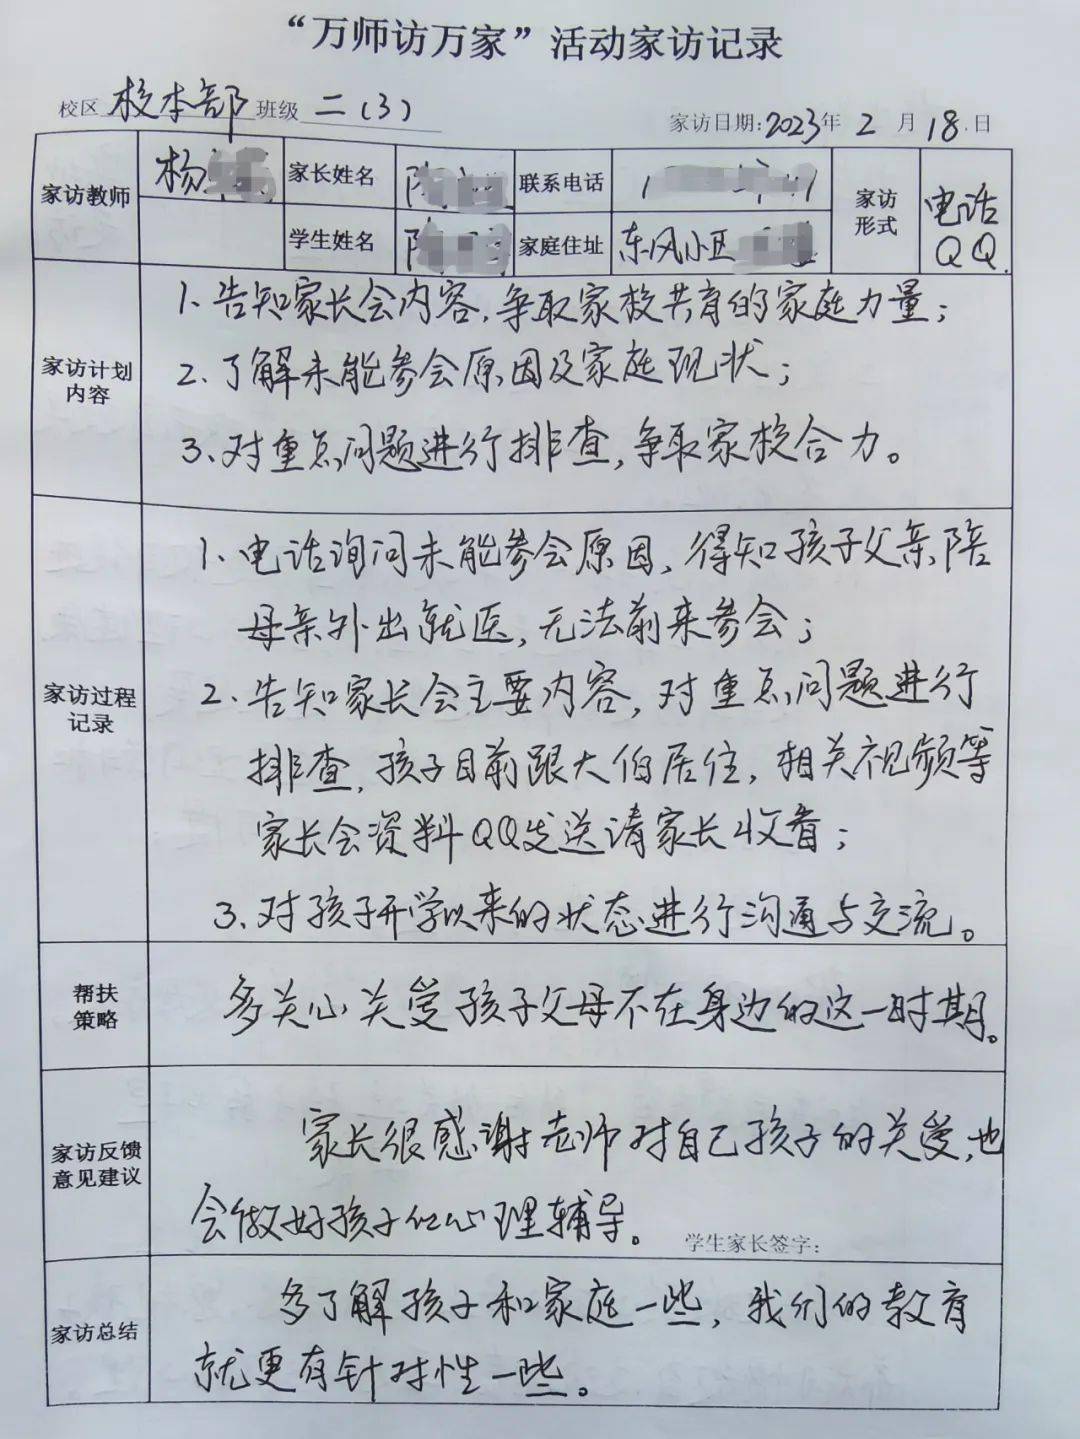 “万师访万家”活动家访记录
校区 校本部 班级 二(3) 家访日期:2023年 2 月 18 日
家访教师 杨 家长姓名 陈 联系电话 家访形式 电话 QQ
学生姓名 陈 家庭住址 东风小区
家访计划
内容
1、告知家长会内容，争取家校共育的家庭力量；
2、了解未能参会原因及家庭现状；
3、对重点问题进行排查，争取家校合力。
家访过程
记录
1、电话询问未能参会原因，得知孩子父亲陪
母亲外出就医，无法前来参会；
2、告知家长会主要内容，对重点问题进行
排查，孩子目前跟大伯居住，相关视频等
家长会资料QQ发送请家长收看；
3、对孩子开学以来的状态进行沟通与交流。
帮扶
策略
多关心关爱孩子父母不在身边的这一时期。
家访反馈
意见建议
家长很感谢老师对自己孩子的关爱，也
会做好孩子的心理辅导。
学生家长签字：
家访总结
多了解孩子和家庭一些，我们的教育
就更有针对性一些。